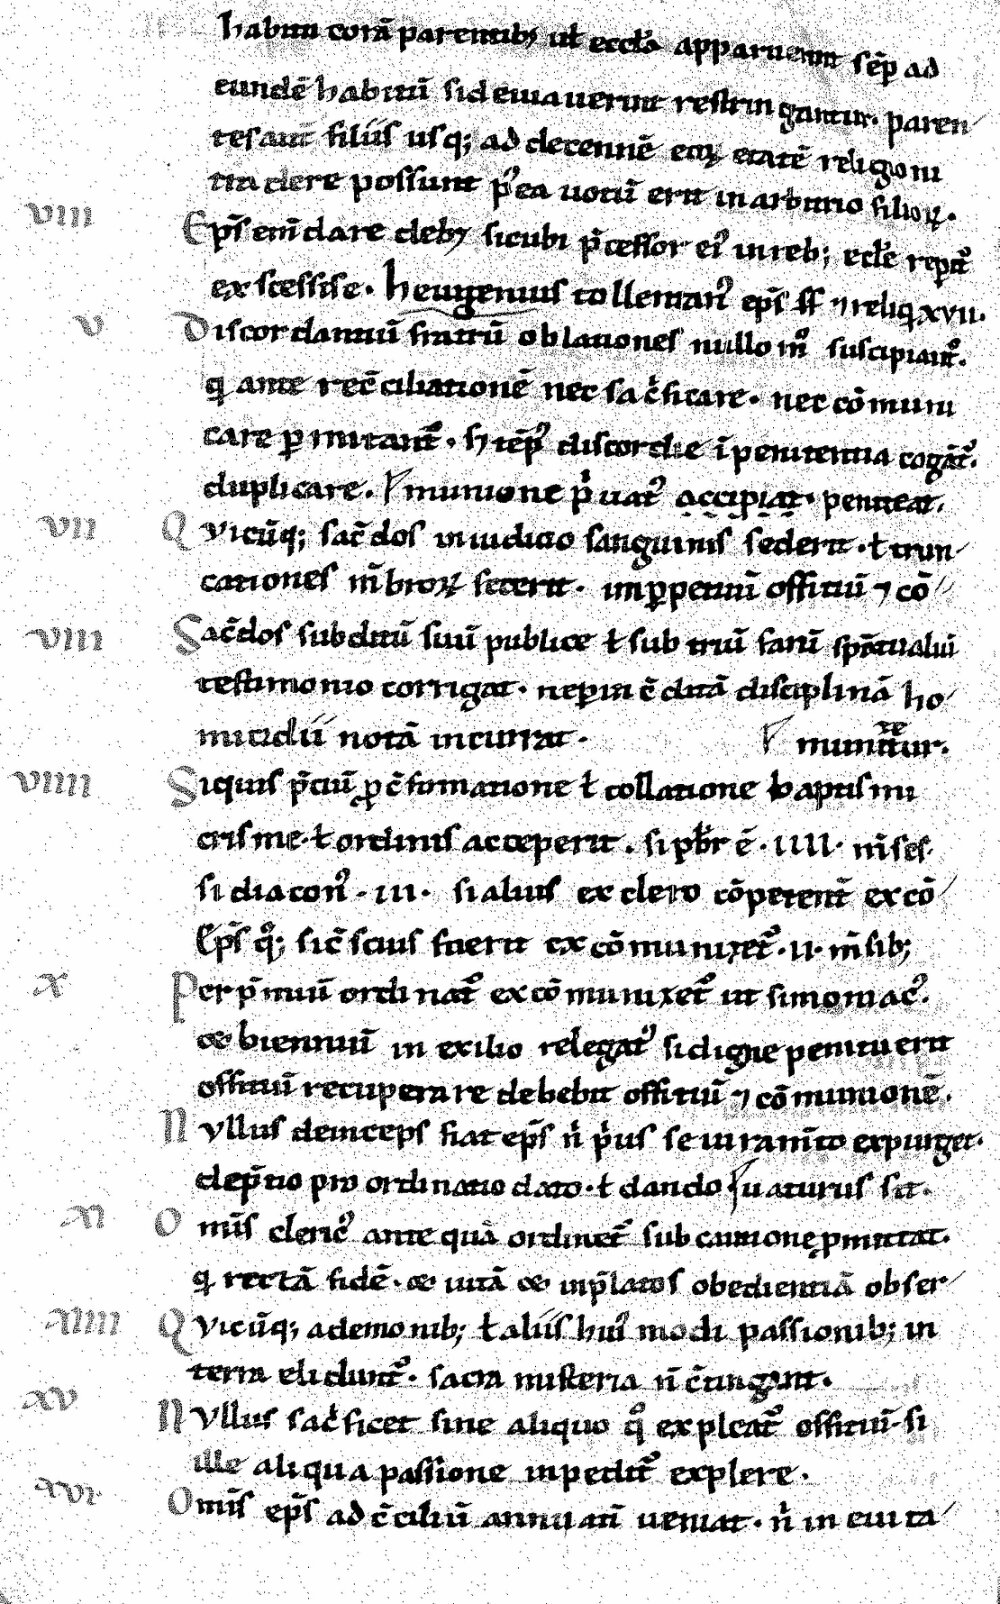 habitu corā parentibꝫ ul̄ eccl̄a apparuerint sēp ad
eundē habitū si deuiauerint restringantur. paren
tes aut̄ filiis usq; ad decennē eoꝝ etatē religioni
tradere possunt p̾ea uotū erit in arbitrio filioꝝ.
viii Ep̄s eni dare debꝫ sicubi p̄cessor ei᷒ in reb; eccl̄e repit᷒
excessisse. heugenius tolletan᷒ ep̄s ff ⁊ reliq xvii.
v Discordantiū fratrū oblationes nullo m̊ suscipiant᷒.
qi ante rec̄ciliationē nec sac̄ficare. nec cōmuni
care ꝑmittant᷒. s; tēp᷒ discordie ī penitentia cogāt᷒.
duplicare. munione p̾uat᷒ accipiat. peniteat.
vii Qvicūq; sac̄dos in iudicio sanguinis sederit. ł trun
cationes m̄broꝝ fecerit. inꝑpetuū offitiū ⁊ cō
viii Sac̄dos subditū suū publice ł sub triū fratrū sp̄ritualiū
testimonio corrigat. ne ꝑ in c̄ditā disciplinā ho
micidii notā incurrat. munitetur.
viiii Siquis p̄ciū ꝓ c̄firmatione ł collatione baptismi
crisme. ł ordinis acceperit. si pb̄r ē. iiii. m̄ses.
si diacon᷒. iii. si alius ex clero cōpetent̄ excō
Ep̄s q̊; si c̄scius fuerit excōmunixet᷒. ii. m̄sib;
x Per p̄miū ordinat᷒ excōmunixet᷒ ut simoniac᷒.
⁊ biennuū in exilio relegat᷒ si digne penituerit
offitiū recuperare debebit offitiū ⁊ cōmunionē.
Nvllus deinceps fiat ep̄s n̄ p̾us se iuram̄to expurget.
de p̄tio pro ordinatio dato. ł dando uaturus sit.
xii Omīs cleric᷒ ante quā ordinet᷒ sub cautione ꝓmittat.
qi rectā fidē. ⁊ uitā ⁊ in p̄latos obedientiā obser
xiiii Qvicūq; ademonib; ł aliis hui᷒ modi passionib; in
terra elidunt᷒. sacra misteria n̄ c̄tingant.
xv Nvllus sac̄ficet sine aliquo q̊ expleat᷒ offitiū. si
ille aliqua passione inpedit᷒ explere.
xvi Omīs ep̄s ad c̄ciliū annuatī ueniat. n̄ in euita